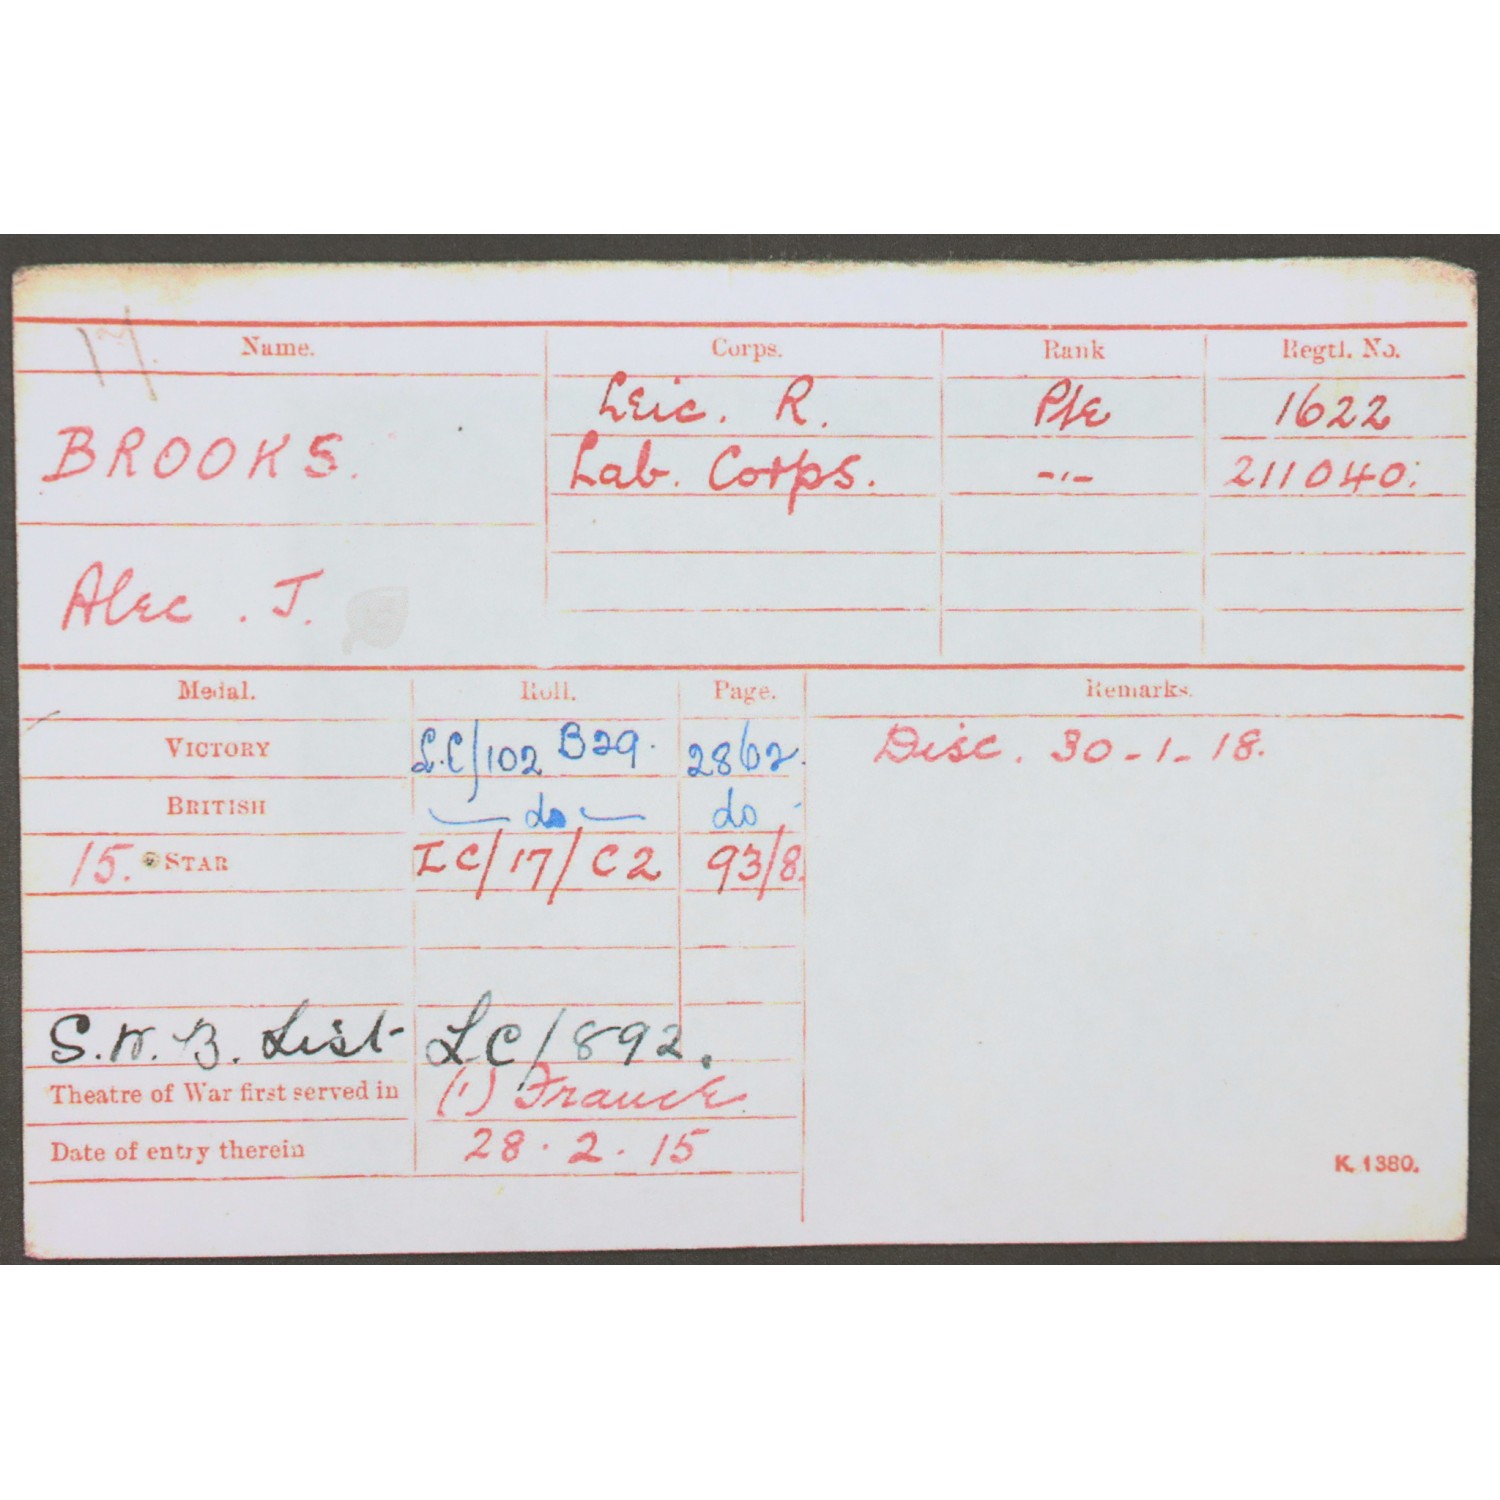 17.
Name. Corps. Rank Regtl. No.
BROOKS. Leic. R. Pte 1622
Lab. Corps. -"- 211040.
Alec. J.
Medal. Roll. Page. Remarks.
VICTORY L.C/102 B29. 2862. Disc. 30-1-18.
BRITISH — do — do
15. STAR LC/17/C2 93/8.
S.W.B. List LC/892.
Theatre of War first served in (1) France
Date of entry therein 28.2.15
K. 1380.